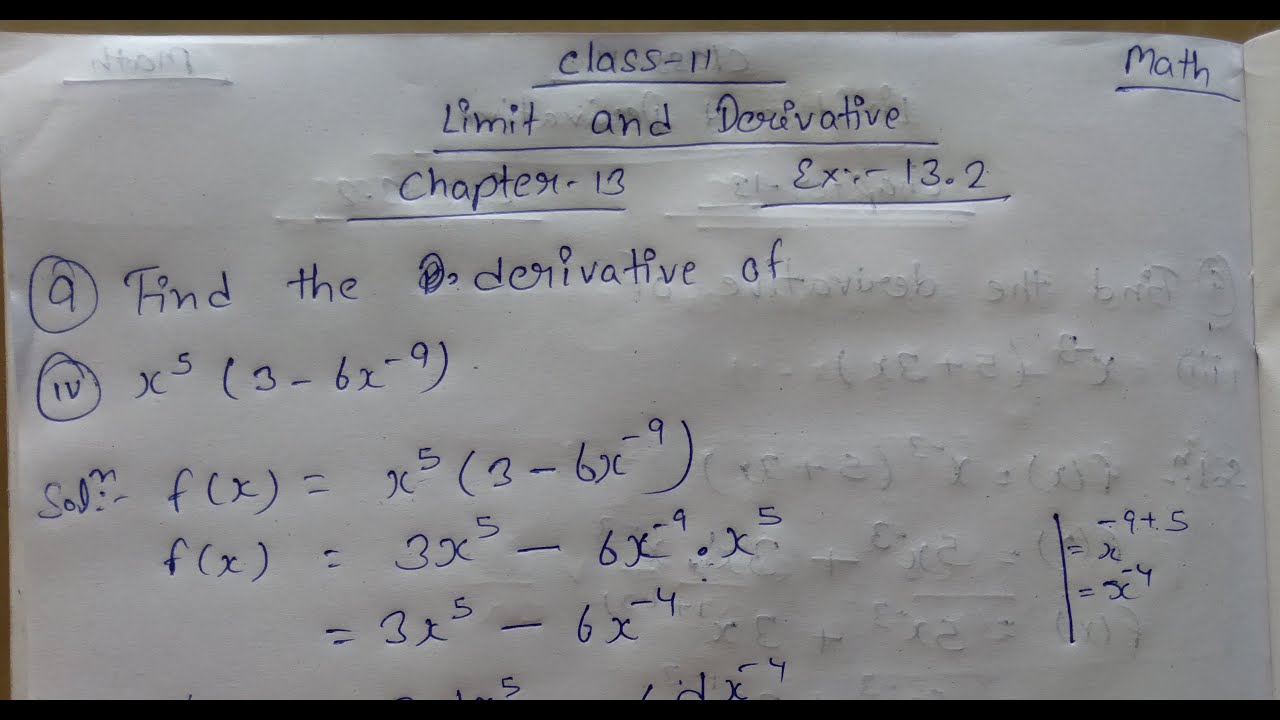 Class-11
Math
Limit and Derivative
Chapter-13 Ex:-13.2
9 Find the derivative of
iv x⁵ (3 - 6x⁻⁹).
Solⁿ:- f(x) = x⁵(3 - 6x⁻⁹)
f(x) = 3x⁵ - 6x⁻⁹ . x⁵
= x⁻⁹⁺⁵
= x⁻⁴
= 3x⁵ - 6x⁻⁴